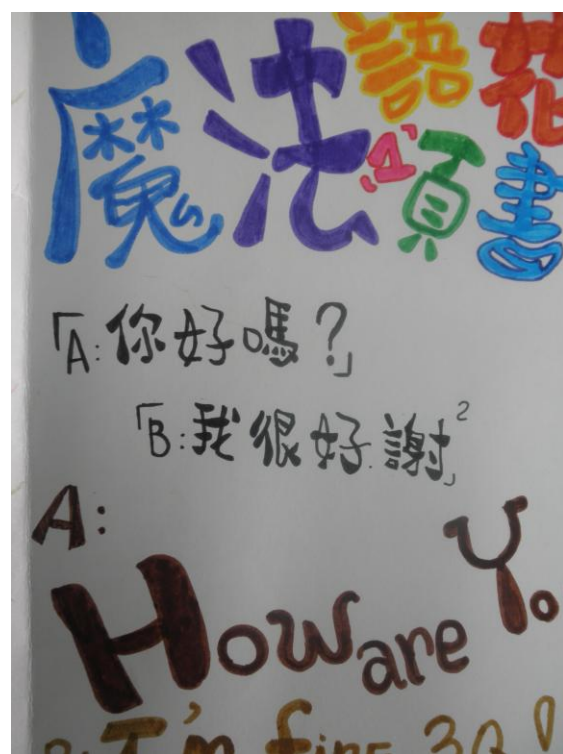 魔法語花
1頁書
「A:你好嗎?」
「B:我很好.謝²」
A:
How are Yo
I'm fine 30!